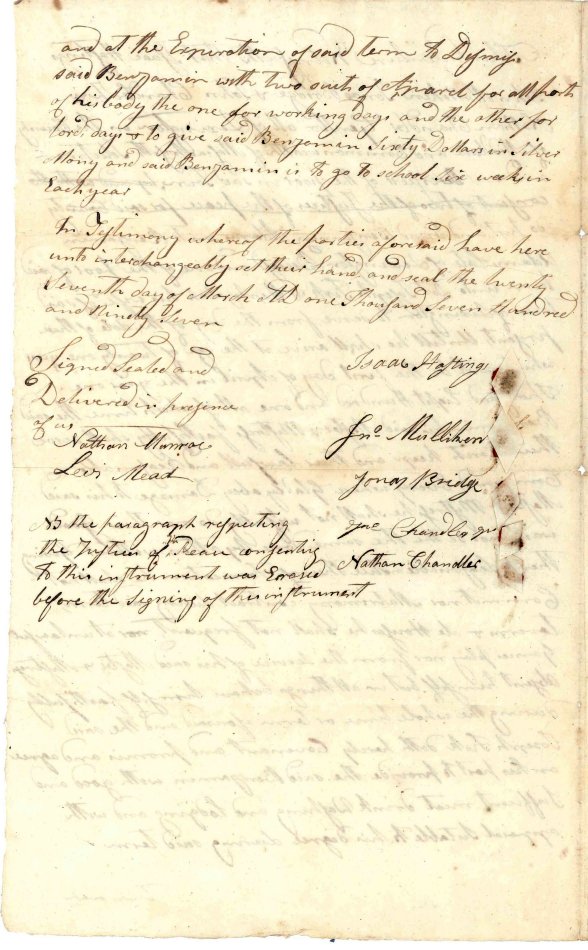 and at the Expiration of said term to Dismiss
said Benjamin with two suits of Aparel for all parts
of his body the one for working days and the other for
lords days & to give said Benjamin Sixty Dollars in Silver
Mony and said Benjamin is to go to school Six weeks in
Each year
In Testimony whereof the parties aforesaid have here
unto interchangeably set their hand and seal the twenty
Seventh day of March AD one Thousand Seven Hundred
and Ninety Seven
Signed Sealed and
Delivered in presence
of us
Nathan Munroe
Levi Mead
Isaac Hastings
Jno Mulliken
Jonas Bridge
Chandler
Nathan Chandler
NB the paragraph respecting
the Justices of the Peace consenting
to this instrument was Erased
before the signing of this instrument